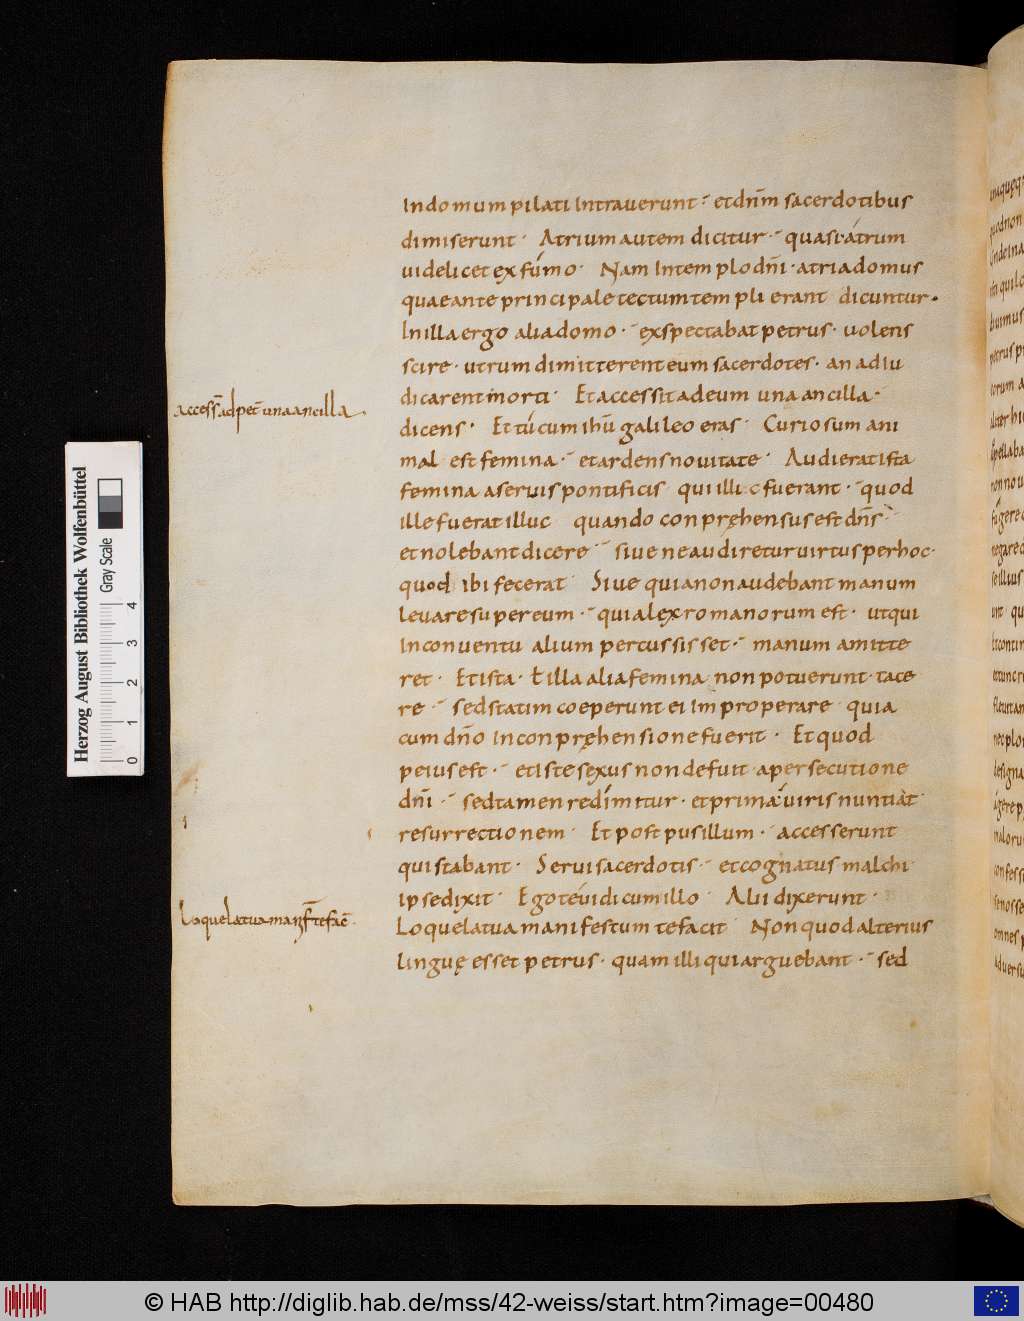 In domum pilati Intraverunt · et dnm̄ sacerdotibus
dimiserunt · Atrium autem dicitur · quasi átrum
videlicet ex fúmo · Nam Intemplo dn̄i · atria domus
quae ante principale tectum templi erant dicuntur ·
In illa ergo alia domo · exspectabat petrus · volens
scire · utrum dimitterent eum sacerdotes · an adiu
dicarent morti · Et accessit ad eum una ancilla ·
accessit̄ ad pet̄ una ancilla
dicens · Et tú cum ihū galileo eras · Curiosum ani
mal est femina · et ardens novitate · Audierat ista
femina a servis pontificis qui illic fuerant · quod
ille fuerat illuc quando conpręhensus est dn̄s ·
et nolebant dicere · sive ne audiretur virtus per hoc ·
quod ibi fecerat Sive quia non audebant manum
levare super eum · quia lex romanorum est · ut qui
In conventu alium percussisset · manum amitte
ret · Et ista · ł illa alia femina non potuerunt · tace
re · sed statim coeperunt ei Improperare quia
cum dn̄o In conpręhensione fuerit · Et quod
peius est · et iste sexus non defuit · a persecutione
dn̄i · sed tamen redímitur · et prima viris nuntiat
resurrectionem · Et post pusillum · accesserunt
qui stabant · Servi sacerdotis · et cognatus malchi
ipse dixit · Ego te vidi cum illo · Alii dixerunt ·
Loquela tua manifestum te facit Non quod alterius
Loquela tua manif̄t te facē
linguę esset petrus · quam illi qui arguebant · sed
Herzog August Bibliothek Wolfenbüttel
Gray Scale
0 1 2 3 4
© HAB http://diglib.hab.de/mss/42-weiss/start.htm?image=00480